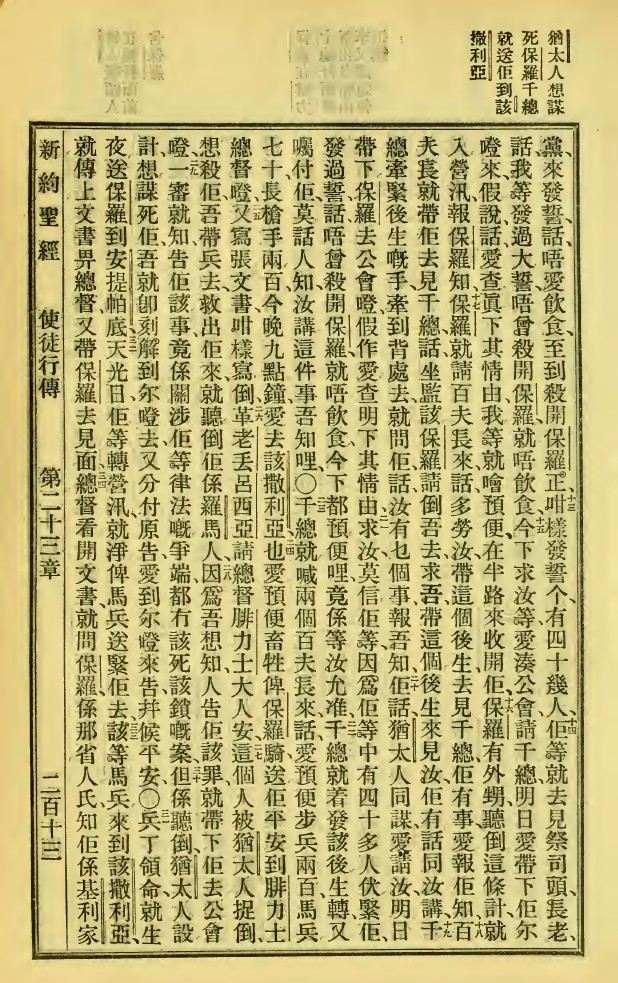 猶太人想謀
死保羅千總
就送佢到該
撒利亞
黨來發誓話、唔愛飲食、至到殺開保羅。正咁樣發誓个有四十幾人、佢等就去見祭司頭、長老、
話、我等發過大誓、唔曾殺開保羅、就唔飲食、今下求汝等愛湊公會、請千總明日愛帶下佢尔
嶝來、假說話愛查眞下其情由、我等就噲預便在半路來收開佢、保羅有外甥聽倒這條計、就
入營汛、報保羅知、保羅就請百夫長來話、多勞汝帶這個後生去見千總、佢有事愛報佢知、百
夫長就帶佢去見千總話、坐監該保羅請倒吾去、求吾帶這個後生來見汝、佢有話同汝講、千
總牽緊後生嘅手、牽到背處去、就問佢話、汝有乜個事報吾知、佢話、猶太人同謀愛請汝明日
帶下保羅去公會嶝、假作愛查明下其情由、求汝莫信佢等、因爲佢等中有四十多人伏緊佢、
發過誓話、唔曾殺開保羅、就唔飲食、今下都預便哩、竟係等汝允准、千總就着發該後生轉、又
囑付佢莫話人知、汝講這件事吾知哩、〇千總就喊兩個百夫長來話、愛預便步兵兩百、馬兵
七十、長槍手兩百、今晚九點鐘愛去該撒利亞、也愛預便畜牲、俾保羅騎、送佢平安到腓力士
總督嶝、又寫張文書咁樣寫倒、革老丟呂西亞請總督腓力士大人安、這個人被猶太人捉倒、
想殺佢、吾帶兵去救出佢來、就聽倒佢係羅馬人、因爲吾想知人告佢該罪、就帶下佢去公會
嶝一審、就知告佢該事、竟係關涉佢等律法嘅爭端、都冇該死該鎖嘅案、但係聽倒猶太人設
計想謀死佢、吾就卽刻解到尔嶝去、又分付原告愛到尔嶝來告、幷候平安、〇兵丁領命、就生
夜送保羅到安提帕底、天光日佢等轉營汛、就淨俾馬兵送緊佢去、該等馬兵來到該撒利亞、
就傳上文書畀總督、又帶保羅去見面、總督看開文書、就問保羅係那省人氏、知佢係基利家
新約聖經 使徒行傳 第二十三章 二百十三